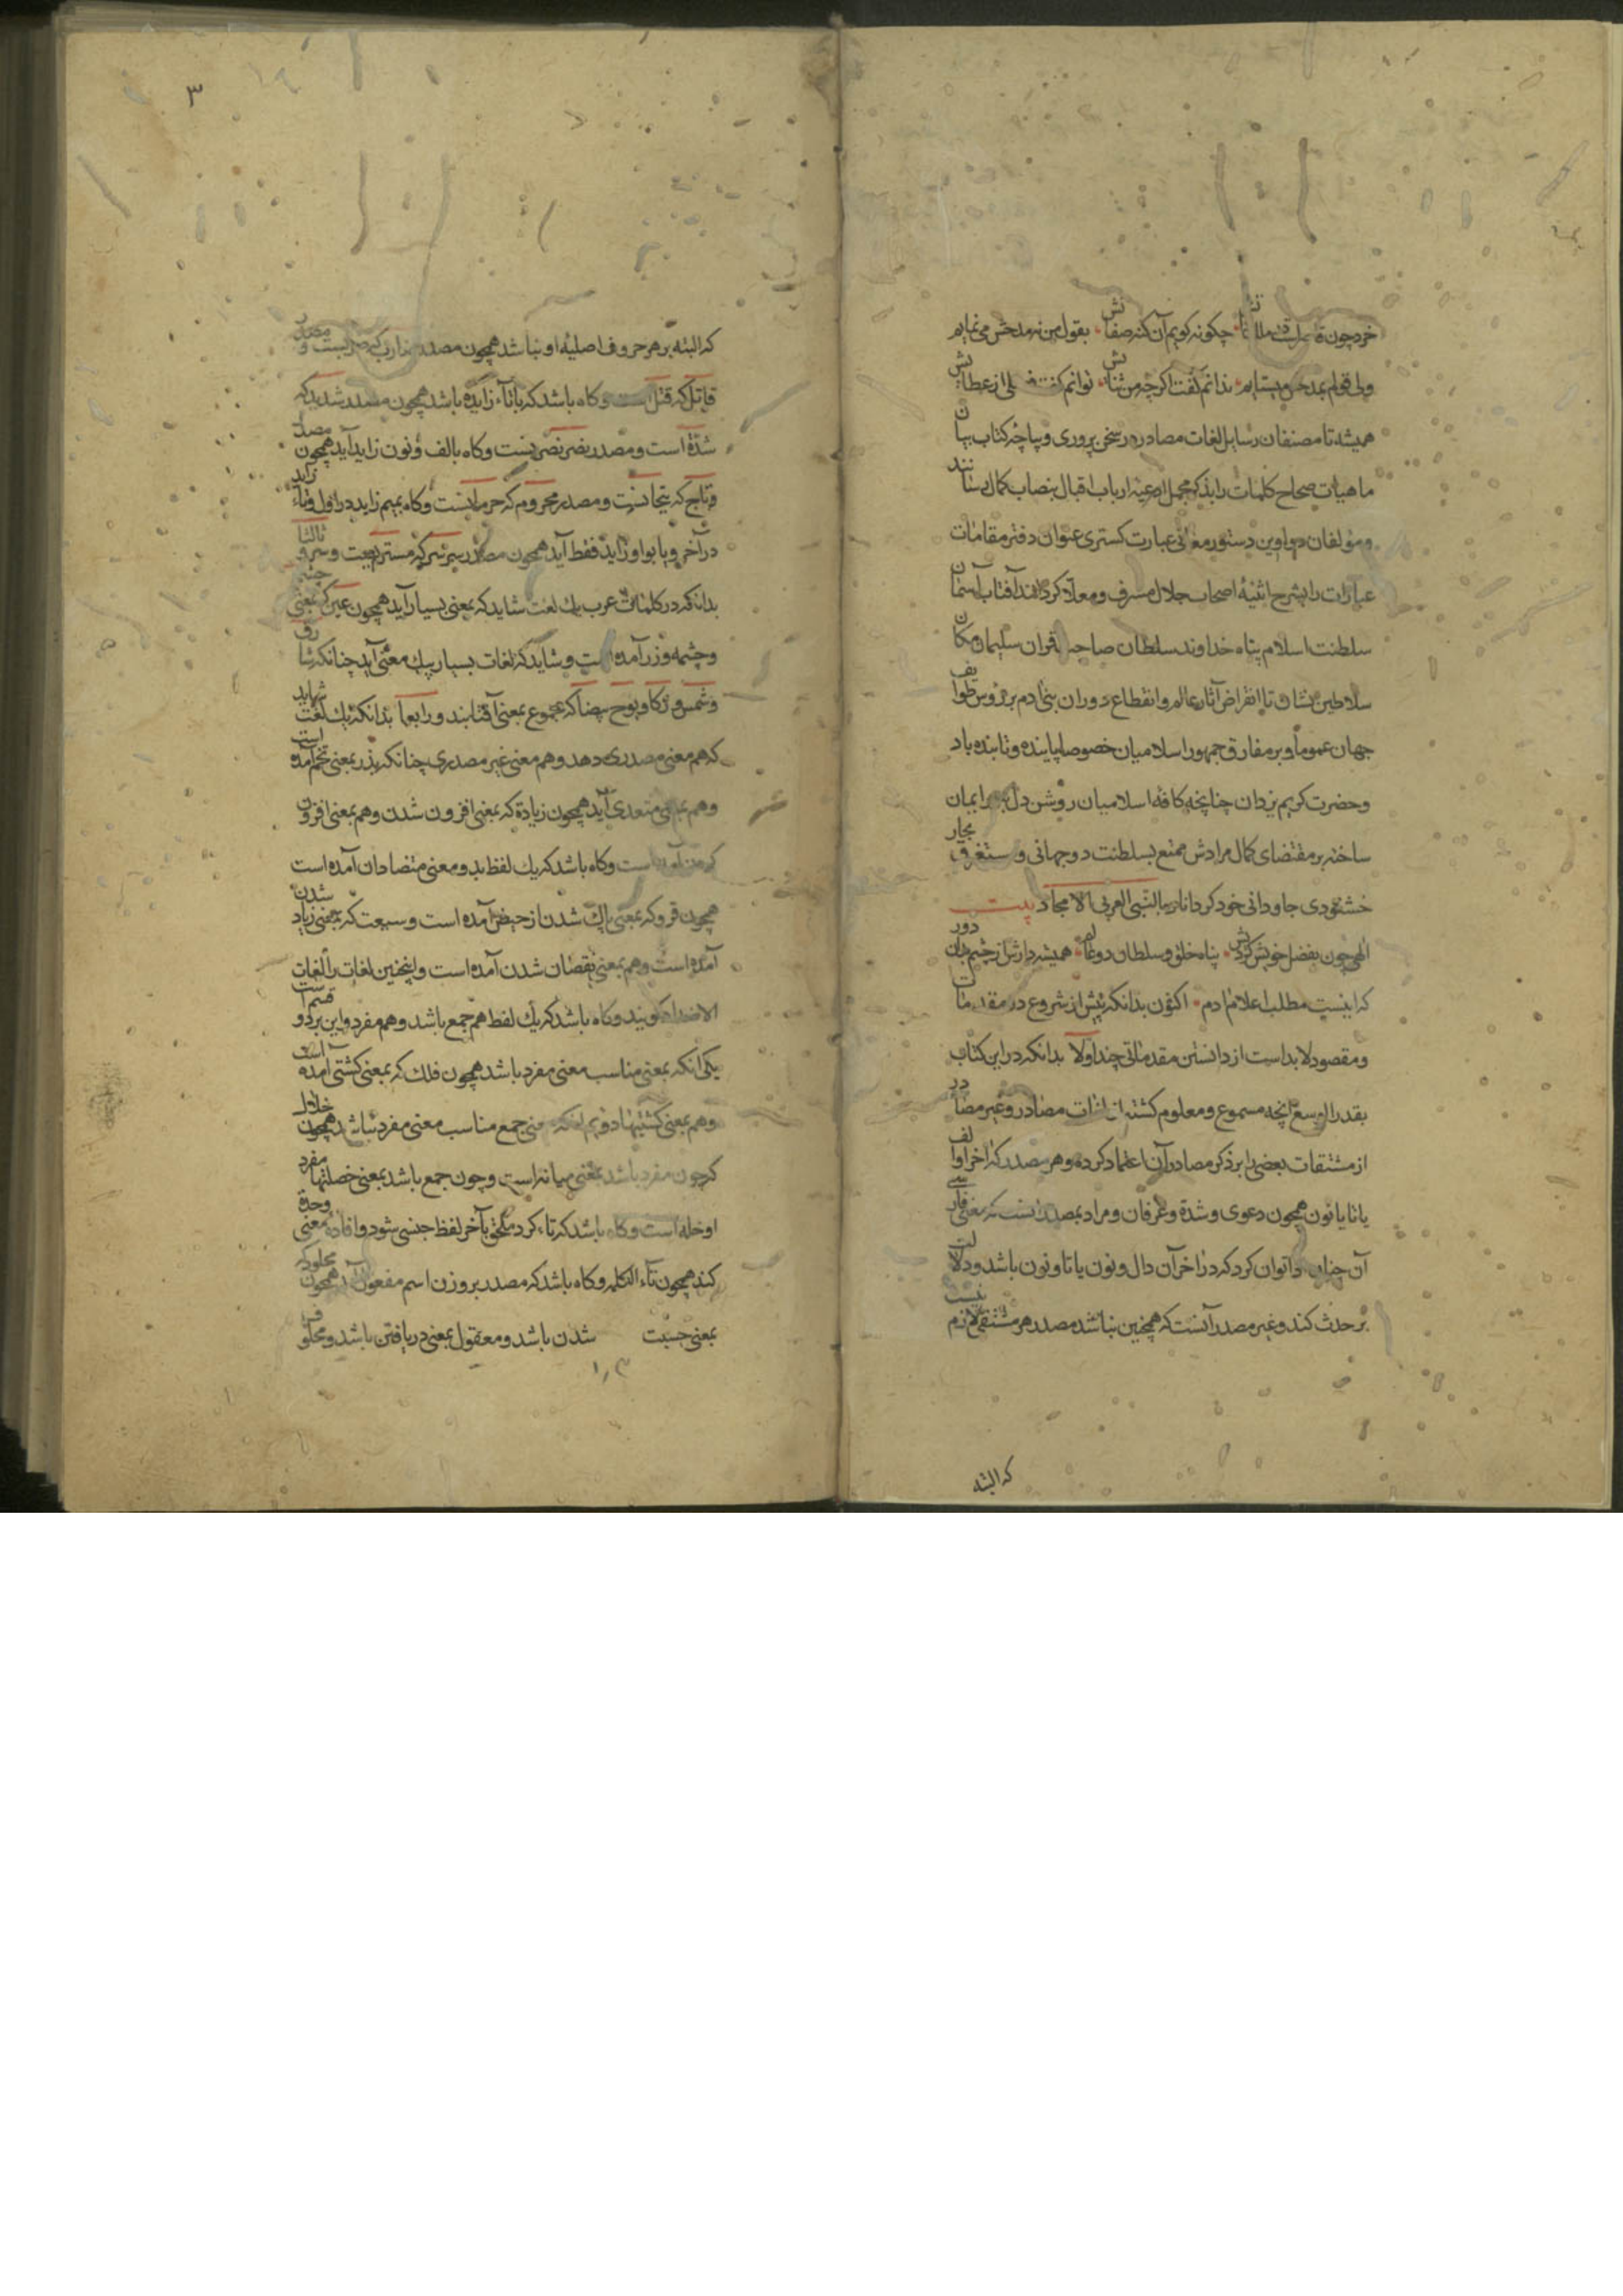 خرد چون قاصرست چگونه گویم آن کنه صفاتش بقول من نه مدحش می‌نمایم
ولی قولم بمدحش میستایم ندانم گفت اکرچه من ثنایش توانم گفت از عطایش
همیشه تا مصنفان رسایل لغات مصادر در سخن پروری دیپاچه کتاب بیان
ماهیات صحاح کلمات را بذکر مجمل ادعیه ارباب اقبال بنصاب کمال رسانند
ومؤلفان دواوین دستور معانی عبارت کستری عنوان دفتر مقامات
عبارات را بشرح اثنیه اصحاب جلال مشرف ومعلا کردانند آفتاب آسمان
سلطنت اسلام پناه خداوند سلطان صاحب قران سلیمان مکان
سلاطین نشان تا انقراض آثار عالم وانقطاع دوران بنی ادم بر رؤس طوایف
جهان عموما وبر مفارق جمهور اسلامیان خصوصا پاینده وتابنده باد
وحضرت کریم یزدان چنانچه کافه اسلامیان روشن دل ایمان
ساخته بر مقتضای کمال مرادش ممتع بسلطنت دوجهانی ومستغرق بحار
خشنودی جاودانی خود کرداناد بالنبی العربی الامجاد بیت
الهی چون بفضل خویش کردش پناه خلق وسلطان دوعالم همیشه دارش از چشم بدان دور
که اینست مطلب اعلام ادم اکنون بدانکه پیش از شروع در مقدمات
ومقصود لابداست از دانستن مقدماتی چند اولا بدانکه در این کتاب
بقدر الوسع آنچه مسموع ومعلوم کشته از لغات مصادر وغیر مصادر
از مشتقات بعضی را بر ذکر مصادر آن اعتماد کرده وهر مصدر که اخر او الف
یا تا یا نون همچون دعوی وشدة وعرفان ومراد بمصدر آنست که بمعنی فارسی
آن چنان ادا توان کرد که در اخر آن دال ونون یا تا ونون باشد ودلالت
بر حدث کند وغیر مصدر آنست که همچنین نباشد مصدر هر مشتقی لازم نیست
که البته
۳
که البته بر هر حروف اصلیه او نباشد همچون مصدر ضارب که ضربست ومصدر
قاتل که قتل است وکاه باشد که با تاء زایده باشد همچون مصدر شدید که
شدة است ومصدر وکاه بالف ونون زاید آید همچون مصدر
ومصدر محروم که حرمانست وکاه بمیم زاید در اول وتاء زاید
در آخر ویا بواو زاید فقط آید همچون مصدر ثالثا
بدانکه در کلمات عرب یک لغت شاید که بمعنی بسیار آید همچون عین که بمعنی
وچشمه وزر آمده است وشاید که لغات بسیار بیک معنی آید چنانکه شارق
وشمس وذکا وبوح بیضا که مجموع بمعنی آفتابند ورابعا بدانکه یک لغت شاید
که هم معنی مصدری دهد وهم معنی غیر مصدری چنانکه بذر بمعنی تخم آمده است
وهم بمعنی متعدی آید همچون زیادة که بمعنی افزون شدن وهم بمعنی افزون
کردن آمده است وکاه باشد که یک لفظ بدو معنی متضادان آمده است
همچون قروکه بمعنی پاک شدن از حیض آمده است شدن
آمده است وهم بمعنی نقصان شدن آمده است واینچنین لغات را لغات
الاضداد کویند وکاه باشد که یک لفظ هم جمع باشد وهم مفرد واین بر دو قسم است
یکی آنکه بمعنی مناسب معنی مفرد باشد همچون فلک که بمعنی کشتی آمده است
وهم بمعنی کشتیها دویم آنکه معنی جمع مناسب معنی مفرد نباشد همچون خلال
که چون مفرد باشد بمعنی میانه است وچون جمع باشد بمعنی خصلتها مفرد
او خله است وکاه باشد که تاء کرد ملحق بآخر لفظ جنسی شود وافاده معنی وحدة
کند همچون تاء الکلمه وکاه باشد که مصدر بر وزن اسم مفعول آید همچون مجلود که
بمعنی شدن باشد ومعقول بمعنی دریافتن باشد